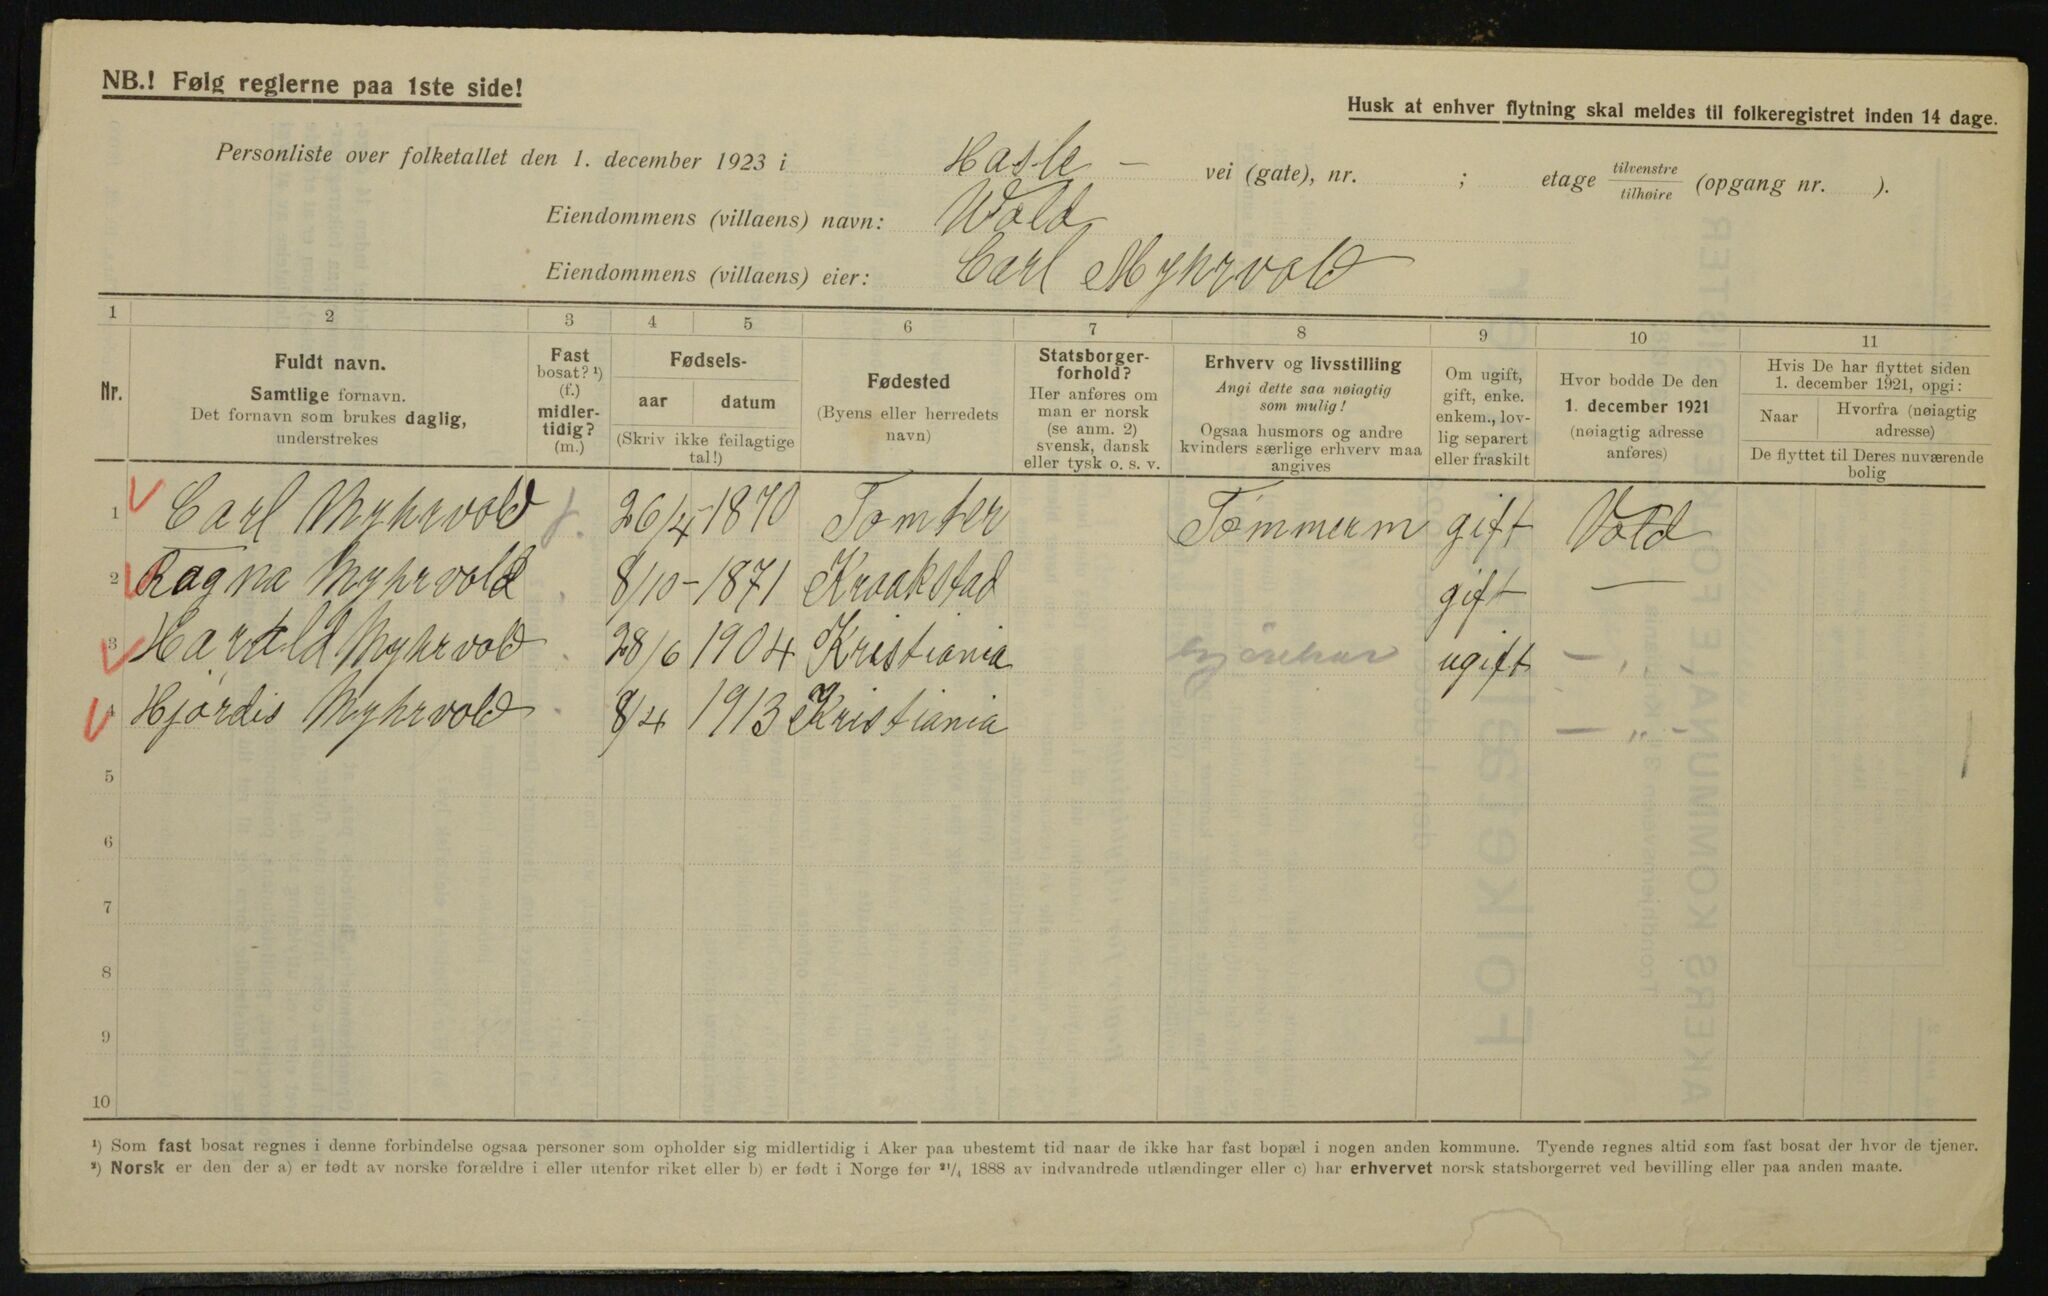 NB.! Følg reglerne paa 1ste side!
Husk at enhver flytning skal meldes til folkeregistret inden 14 dage.
Personliste over folketallet den 1. december 1923 i Hasle – vei (gate), nr. ; etage tilvenstre / tilhøire (opgang nr. ).
Eiendommens (villaens) navn: Wold
Eiendommens (villaens) eier: Carl Myhrvold
1 2 3 4 5 6 7 8 9 10 11
Nr.
Fuldt navn.
Samtlige fornavn.
Det fornavn som brukes daglig,
understrekes
Fast
bosat? ¹)
(f.)
midler-
tidig?
(m.)
Fødsels-
aar datum
(Skriv ikke feilagtige
tal!)
Fødested
(Byens eller herredets
navn)
Statsborger-
forhold?
Her anføres om
man er norsk
(se anm. 2)
svensk, dansk
eller tysk o. s. v.
Erhverv og livsstilling
Angi dette saa nøiagtig
som mulig!
Ogsaa husmors og andre
kvinders særlige erhverv maa
angives
Om ugift,
gift, enke.
enkem., lov-
lig separert
eller fraskilt
Hvor bodde De den
1. december 1921
(nøiagtig adresse
anføres)
Hvis De har flyttet siden
1. december 1921, opgi:
Naar Hvorfra (nøiagtig
adresse)
De flyttet til Deres nuværende
bolig
1 Carl Myhrvold f. 26/4-1870 Tomter Tømmerm gift Vold
2 Ragna Myhrvold 8/10-1871 Kraakstad gift —
3 Harald Myhrvold 28/6 1904 Kristiania ugift — „ -
4 Hjørdis Myhrvold 8/4 1913 Kristiania — „ -
5
6
7
8
9
10
¹) Som fast bosat regnes i denne forbindelse ogsaa personer som opholder sig midlertidig i Aker paa ubestemt tid naar de ikke har fast bopæl i nogen anden kommune. Tyende regnes altid som fast bosat der hvor de tjener.
²) Norsk er den der a) er født av norske forældre i eller utenfor riket eller b) er født i Norge før ²¹/₄ 1888 av indvandrede utlændinger eller c) har erhvervet norsk statsborgerret ved bevilling eller paa anden maate.